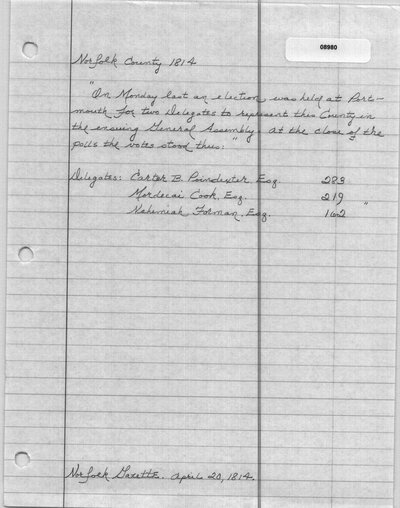 08980
Norfolk County 1814
"On Monday last an election was held at Ports-
mouth for two Delegates to represent this County in
the ensuing General Assembly. At the close of the
polls the votes stood thus: "
Delegates: Carter B. Poindexter, Esq. 283
Mordecai Cook, Esq. 219 "
Nehemiah Forman, Esq. 162
Norfolk Gazette. April 20, 1814.